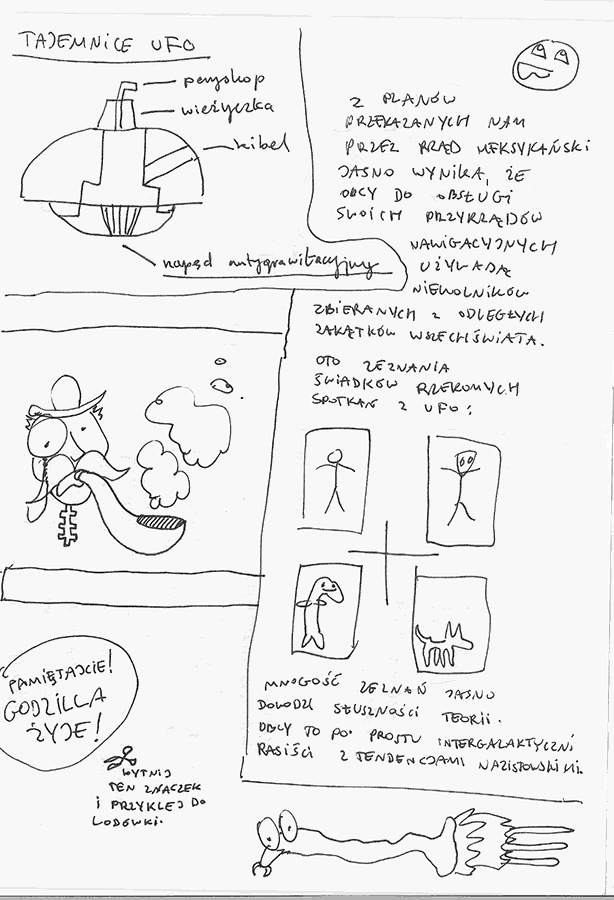 TAJEMNICE UFO
peryskop
wieżyczka
kibel
napęd antygrawitacyjny
Z PLANÓW
PRZEKAZANYCH NAM
PRZEZ RZĄD MEKSYKAŃSKI
JASNO WYNIKA, ŻE
OBCY DO OBSŁUGI
SWOICH PRZYRZĄDÓW
NAWIGACYJNYCH
UŻYWAJĄ
NIEWOLNIKÓW
ZBIERANYCH Z ODLEGŁYCH
ZAKĄTKÓW WSZECHŚWIATA.
OTO ZEZNANIA
ŚWIADKÓW RZEKOMYCH
SPOTKAŃ Z UFO:
MNOGOŚĆ ZEZNAŃ JASNO
DOWODZI SŁUSZNOŚCI TEORII.
OBCY TO PO PROSTU INTERGALAKTYCZNI
RASIŚCI Z TENDENCJAMI NAZISTOWSKIMI.
PAMIĘTAJCIE!
GODZILLA
ŻYJE!
WYTNIJ
TEN ZNACZEK
I PRZYKLEJ DO
LODÓWKI.